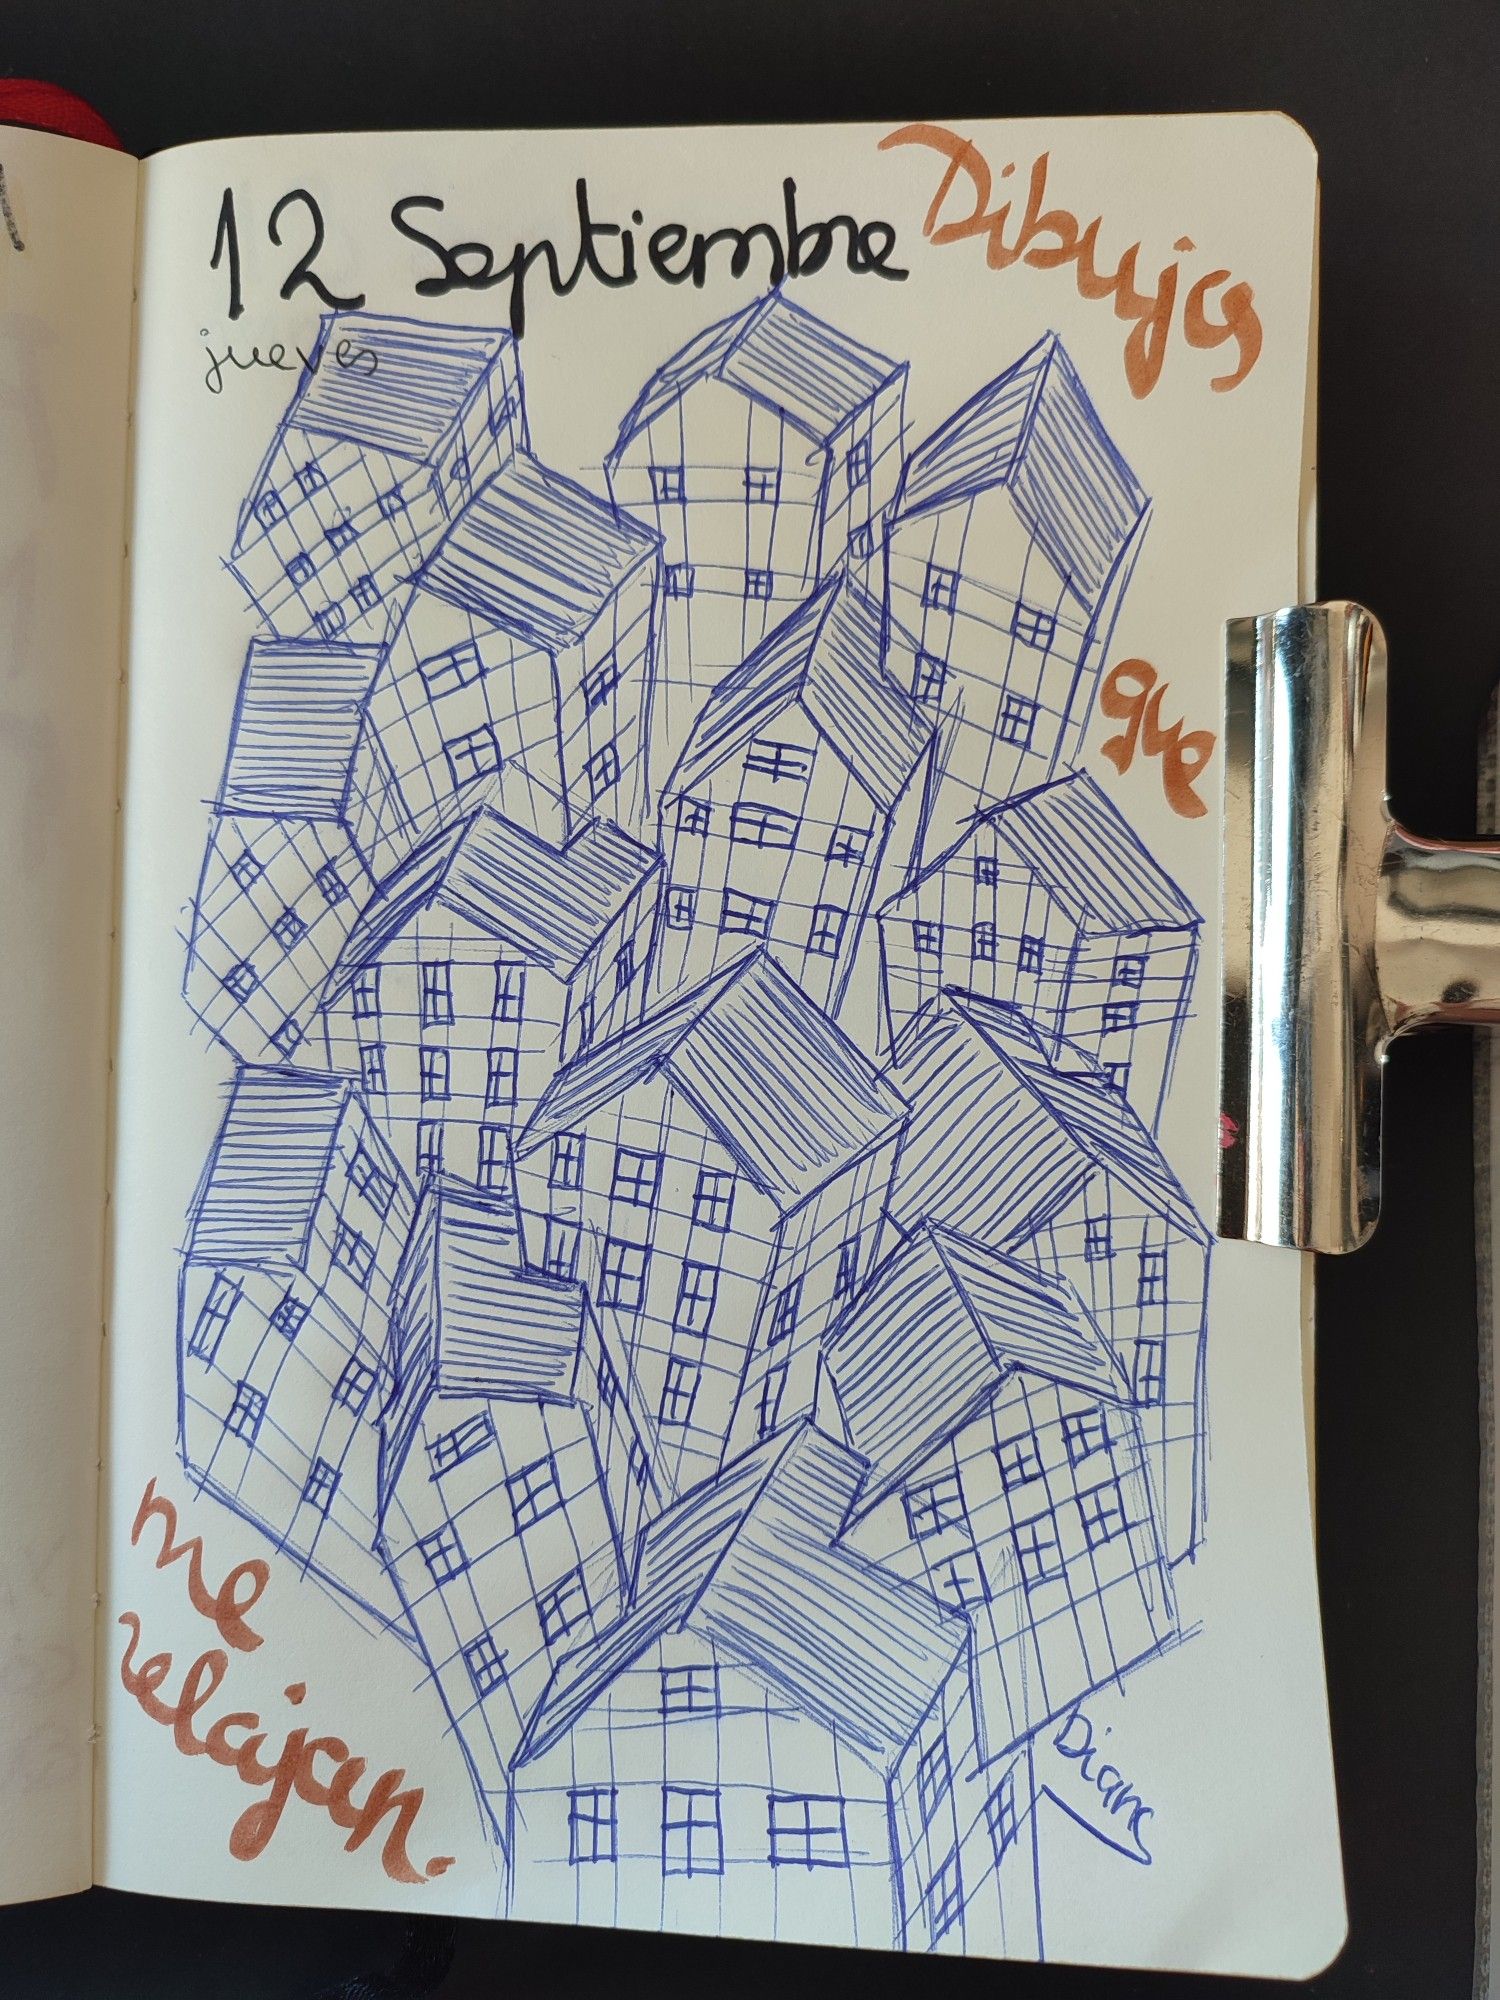 12 Septiembre
jueves
Dibujos
que
me
relajan.
Diana